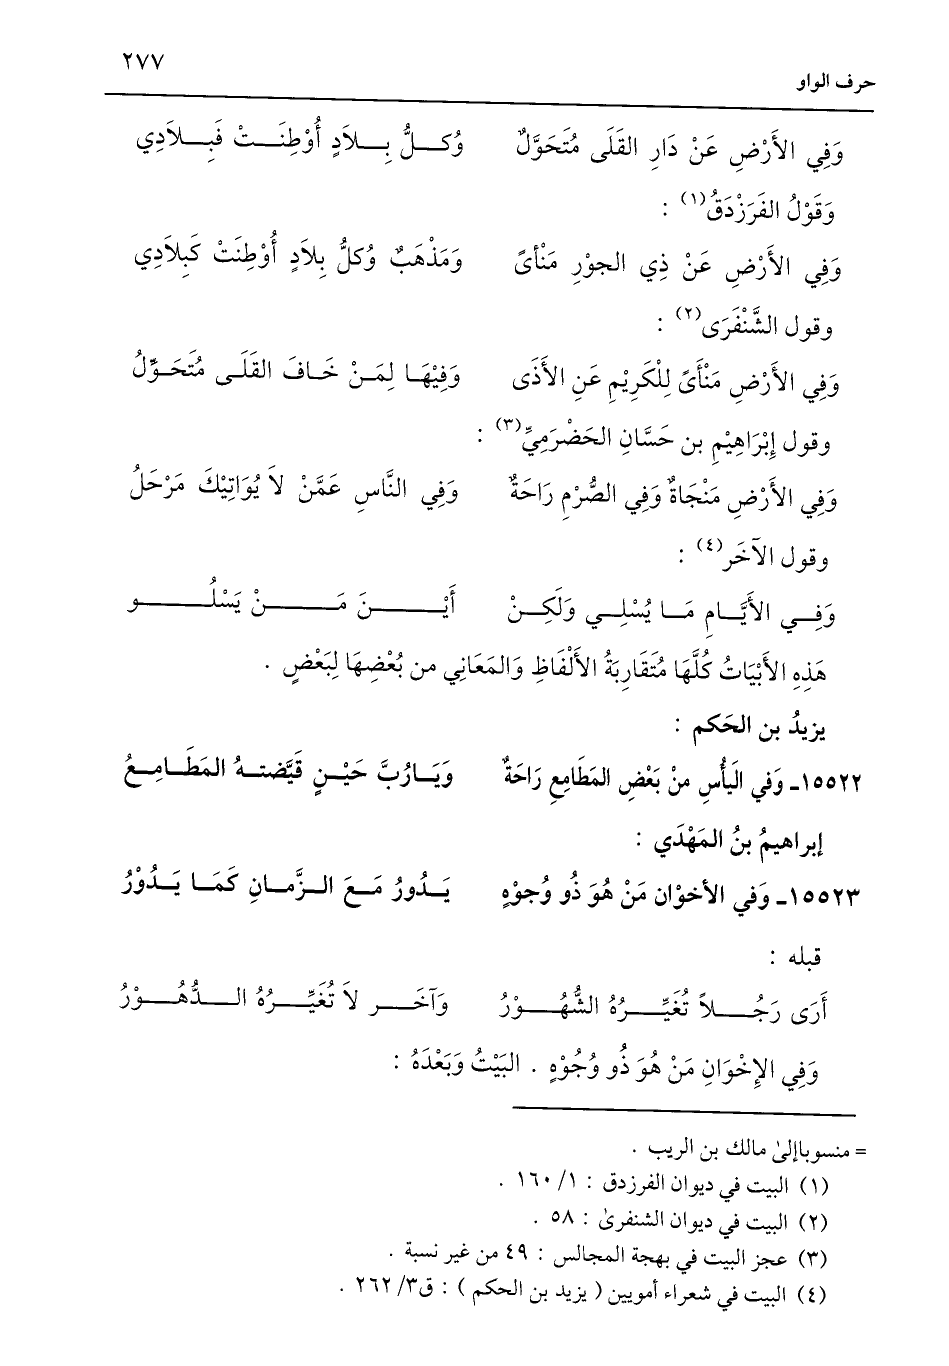 ٢٧٧
حرف الواو
وَفِي الأَرْضِ عَنْ دَارِ القَلَى مُتَحَوَّلٌ وَكُلُّ بِلاَدٍ أُوْطِنَتْ فَبِلاَدِي
وَقَوْلُ الفَرَزْدَقُ(١) :
وَفِي الأَرْضِ عَنْ ذِي الجوْرِ مَنْأىً وَمَذْهَبٌ وُكلُّ بِلاَدٍ أُوْطِنَتْ كَبِلاَدِي
وقول الشَّنْفَرَى(٢) :
وَفِي الأَرْضِ مَنْأىً لِلْكَرِيْمِ عَنِ الأَذَى وَفِيْهَا لِمَنْ خَافَ القَلَى مُتَحَوِّلُ
وقول إِبْرَاهِيْمِ بن حَسَّانِ الحَضْرَمِيِّ(٣) :
وَفِي الأَرْضِ مَنْجَاةٌ وَفِي الصُّرْمِ رَاحَةٌ وَفِي النَّاسِ عَمَّنْ لاَ يُوَاتِيْكَ مَرْحَلُ
وقول الآخَر(٤) :
وَفِي الأَيَّامِ مَا يُسْلِي وَلَكِنْ أَيْنَ مَنْ يَسْلُو
هَذِهِ الأَبْيَاتُ كُلَّهَا مُتَقَارِبَةُ الأَلْفَاظِ وَالمَعَانِي من بُعْضِهَا لِبَعْضٍ .
يزيدُ بن الحَكم :
١٥٥٢٢ـ وَفي الَيأْسِ منْ بَعْضِ المَطَامِعِ رَاحَةٌ وَيَارُبَّ حَيْنٍ قَيَّضتهُ المَطَامِعُ
إبراهيمُ بنُ المَهْدَي :
١٥٥٢٣ـ وَفي الأخوْان مَنْ هُوَ ذُو وُجوْهٍ يَدُورُ مَعَ الزَّمانِ كَمَا يَدُوْرُ
قبله :
أَرَى رَجُلاً تُغَيِّرُهُ الشُّهُوْرُ وَآخَر لاَ تُغَيِّرُهُ الدُّهُوْرُ
وَفِي الإِخْوَانِ مَنْ هُوَ ذُو وُجُوْهٍ . البَيْتُ وَبَعْدَهُ :
= منسوباإلىٰ مالك بن الريب .
(١) البيت في ديوان الفرزدق : ١/ ١٦٠ .
(٢) البيت في ديوان الشنفرىٰ : ٥٨ .
(٣) عجز البيت في بهجة المجالس : ٤٩ من غير نسبة .
(٤) البيت في شعراء أمويين ( يزيد بن الحكم ) : ق٣/ ٢٦٢ .